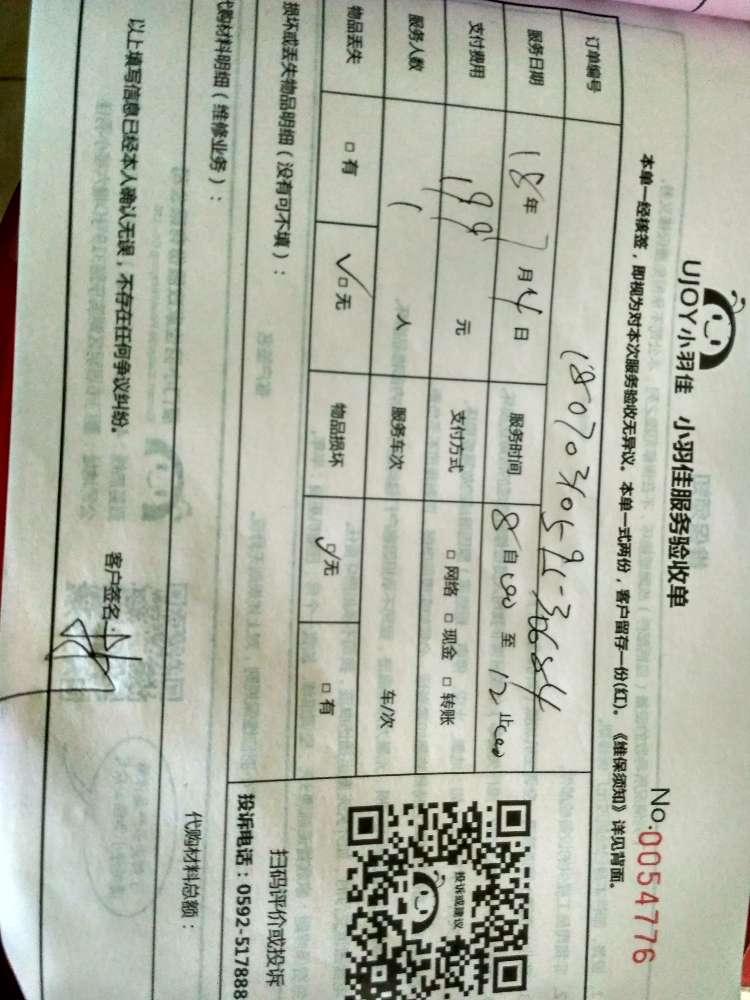 UJOY小羽佳 小羽佳服务验收单 No.0054776
本单一经核签，即视为对本次服务验收无异议。本单一式两份，客户留存一份(红)。《维保须知》详见背面。
订单编号
服务日期 18年7月4日 服务时间 8自00至12止00
支付费用 199元 支付方式 □网络 □现金 □转账
服务人数 1人 服务车次 车/次
物品丢失 □有 ✓□无 物品损坏 ✓无 □有
损坏或丢失物品明细（没有可不填）：
代购材料明细（维修业务）：
代购材料总额：
以上填写信息已经本人确认无误，不存在任何争议纠纷。 客户签名：
投诉或建议
扫码评价或投诉
投诉电话：0592-517888